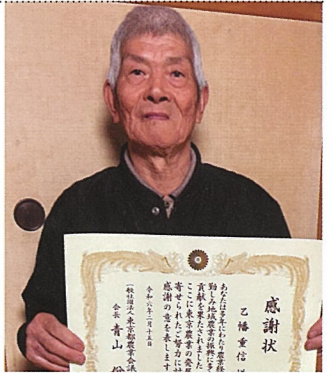 感謝状
乙幡重信
あなたは多年にわたり農業経
勤しみ地域農業の振興に多
貢献を果たされました
ここに東京農業の発展
寄せられたご努力に対
感謝の意を表します
令和六年二月十五日
一般社団法人東京都農業会議
会長 青山